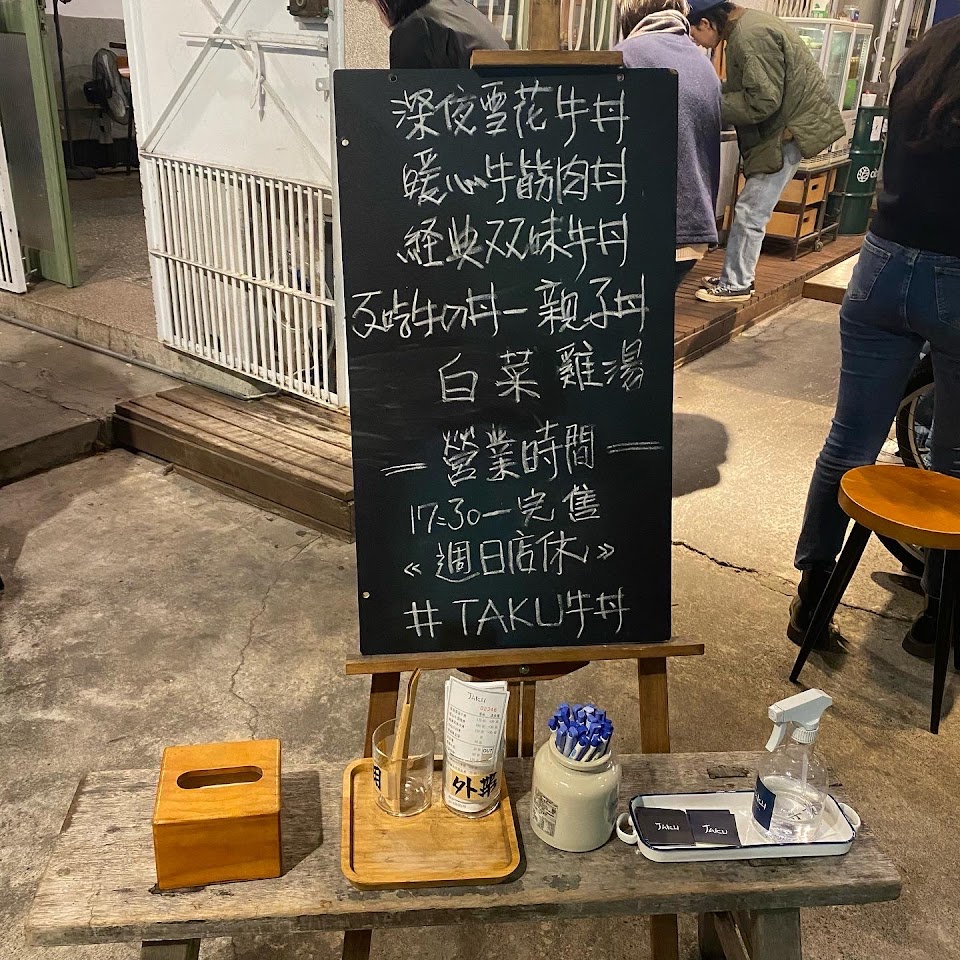 深夜雪花牛丼
暖心牛筋肉丼
経典双味牛丼
不吃牛の丼一親子丼
白菜雞湯
＝營業時間＝
17:30一完售
《週日店休》
# TAKU牛丼
TAKU
02346
外帶
用
TAKU
TAKU